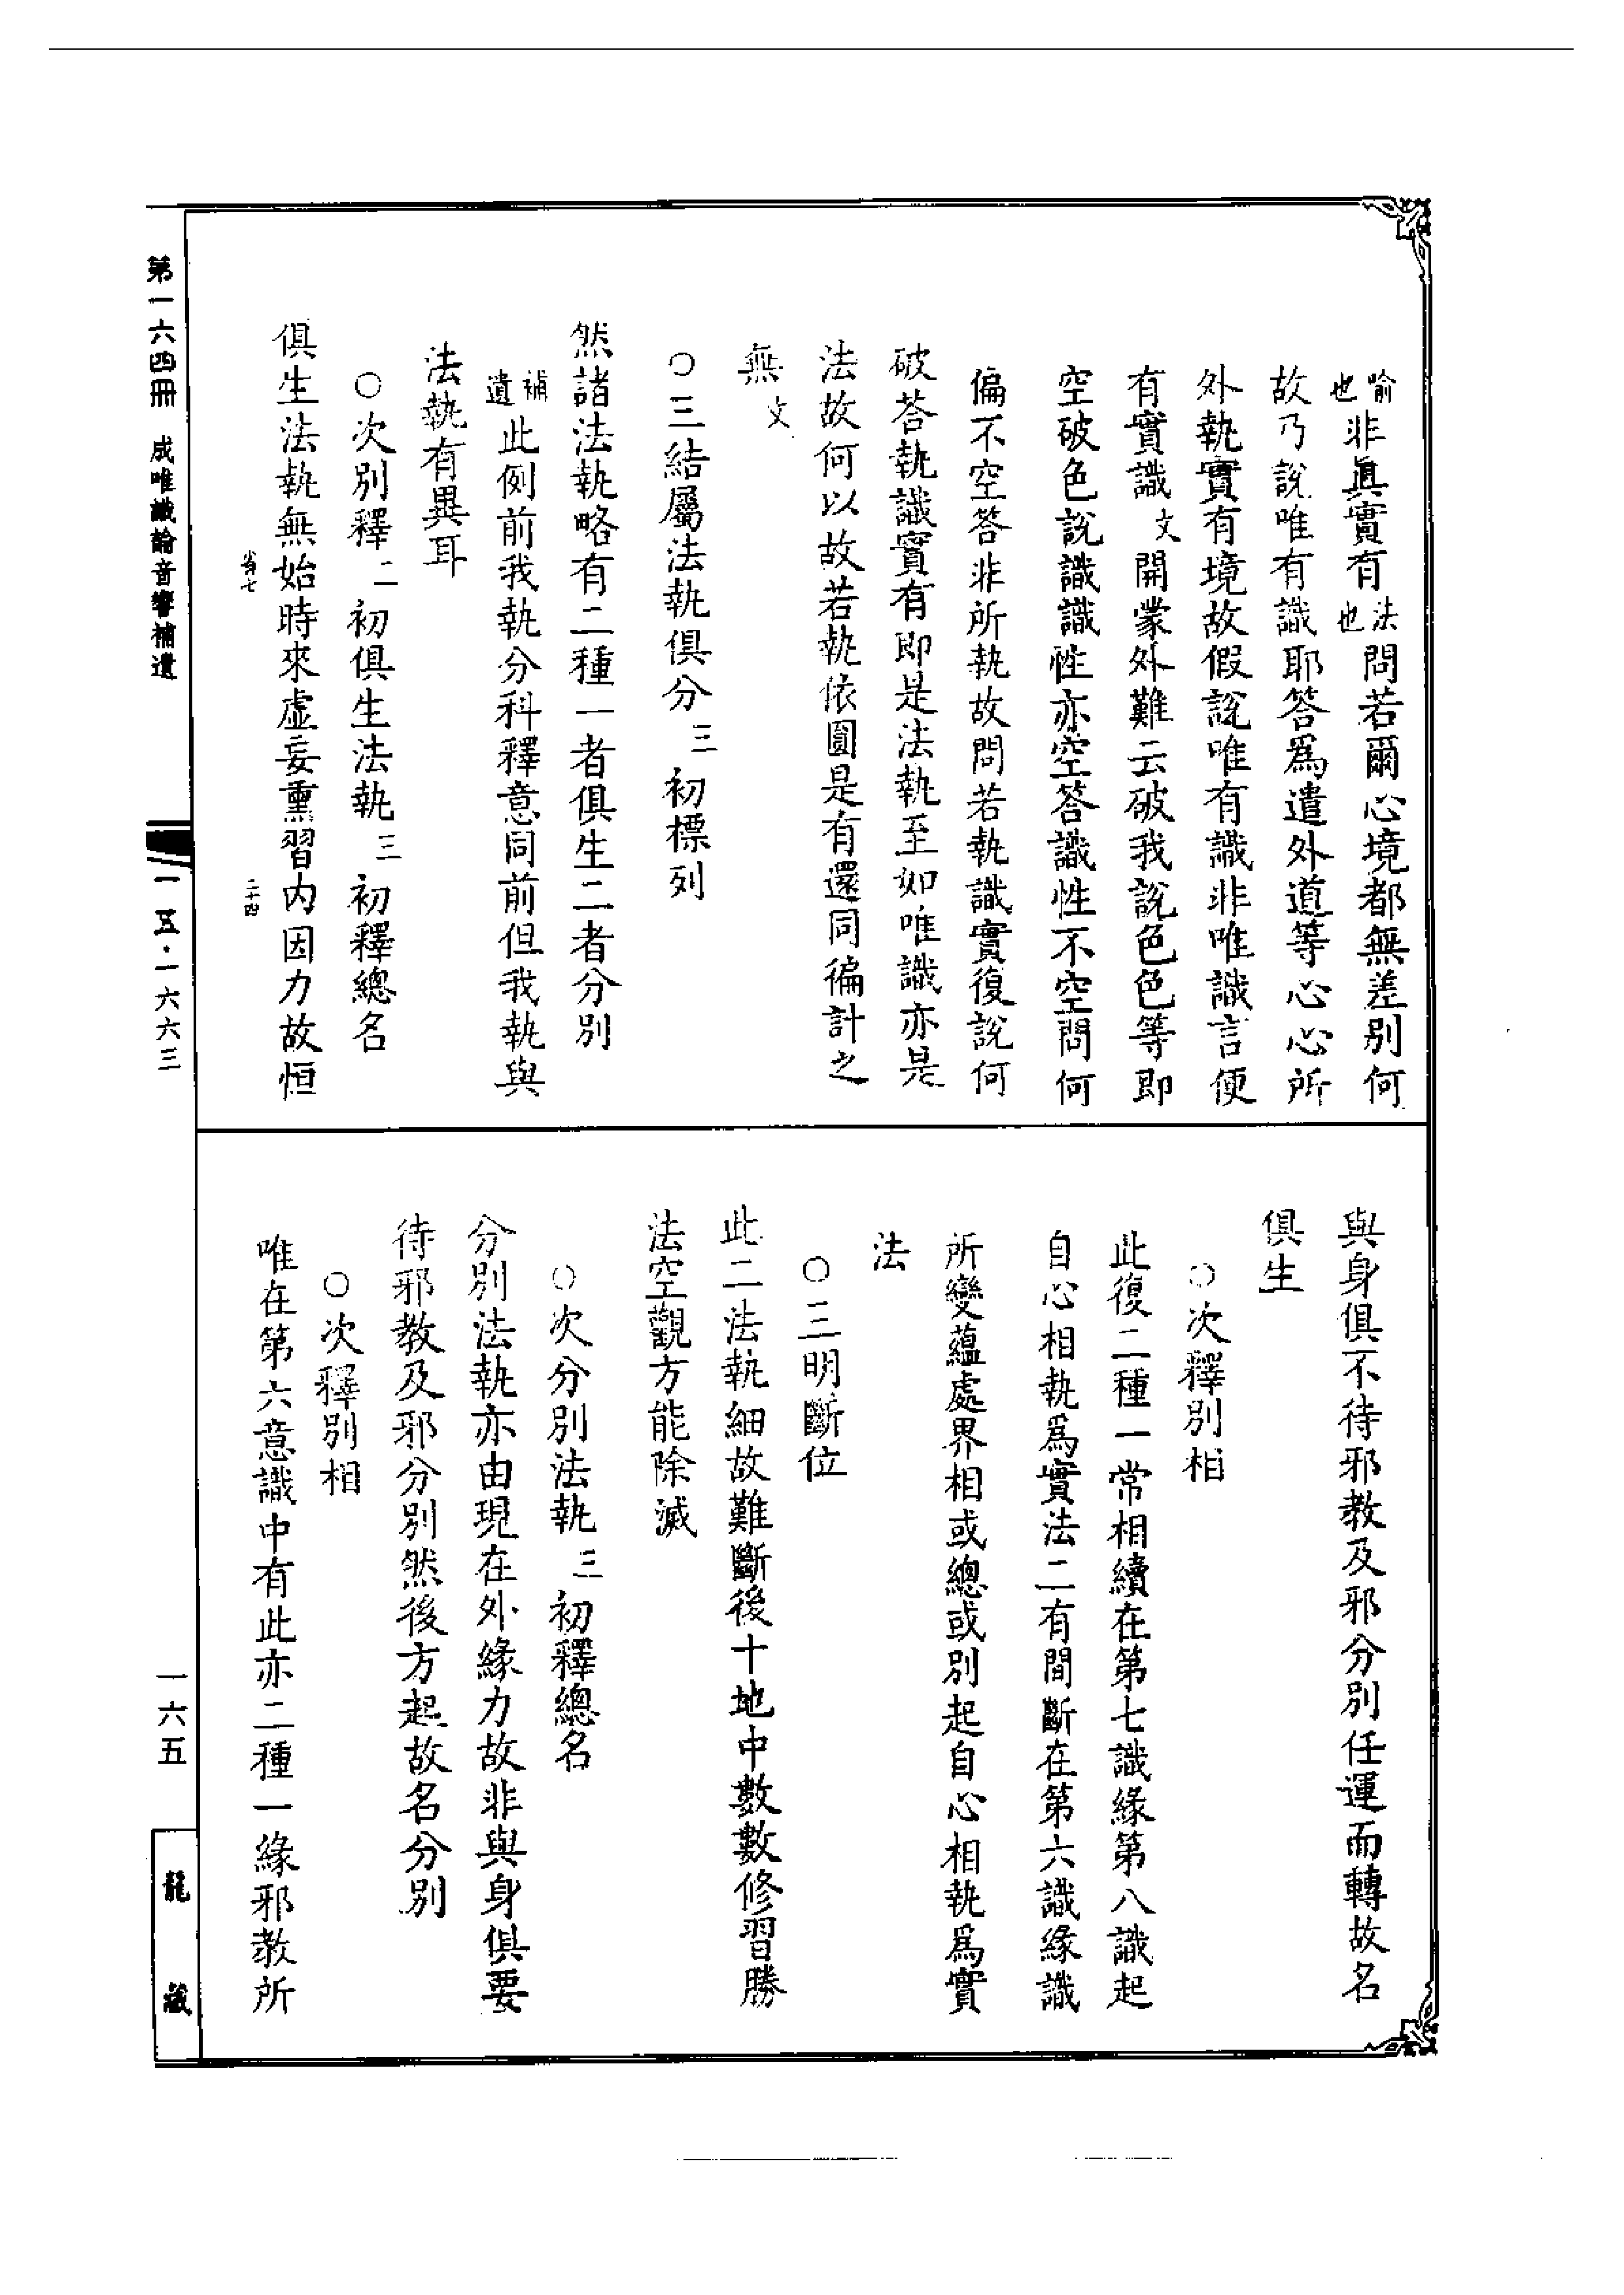 喻也非眞實有法也問若爾心境都無差別何
故乃說唯有識耶答爲遣外道等心心所
外執實有境故假說唯有識非唯識言便
有實識文開蒙外難云破我說色色等即
空破色說識識性亦空答識性不空問何
偏不空答非所執故問若執識實復說何
破答執識實有即是法執至如唯識亦是
法故何以故若執依圓是有還同徧計之
無文
○三結屬法執俱分三初標列
然諸法執略有二種一者俱生二者分別
補遺此例前我執分科釋意同前但我執與
法執有異耳
○次別釋二初俱生法執三初釋總名
俱生法執無始時來虛妄熏習内因力故恒
省七
二十四
與身俱不待邪教及邪分別任運而轉故名
俱生
○次釋別相
此復二種一常相續在第七識緣第八識起
自心相執爲實法二有間斷在第六識緣識
所變蘊處界相或總或別起自心相執爲實
法
○三明斷位
此二法執細故難斷後十地中數數修習勝
法空觀方能除滅
○次分別法執三初釋總名
分別法執亦由現在外緣力故非與身俱要
待邪教及邪分別然後方起故名分別
○次釋別相
唯在第六意識中有此亦二種一緣邪教所
第一六四冊 成唯識論音響補遺
一五·一六六三
一六五
龍藏